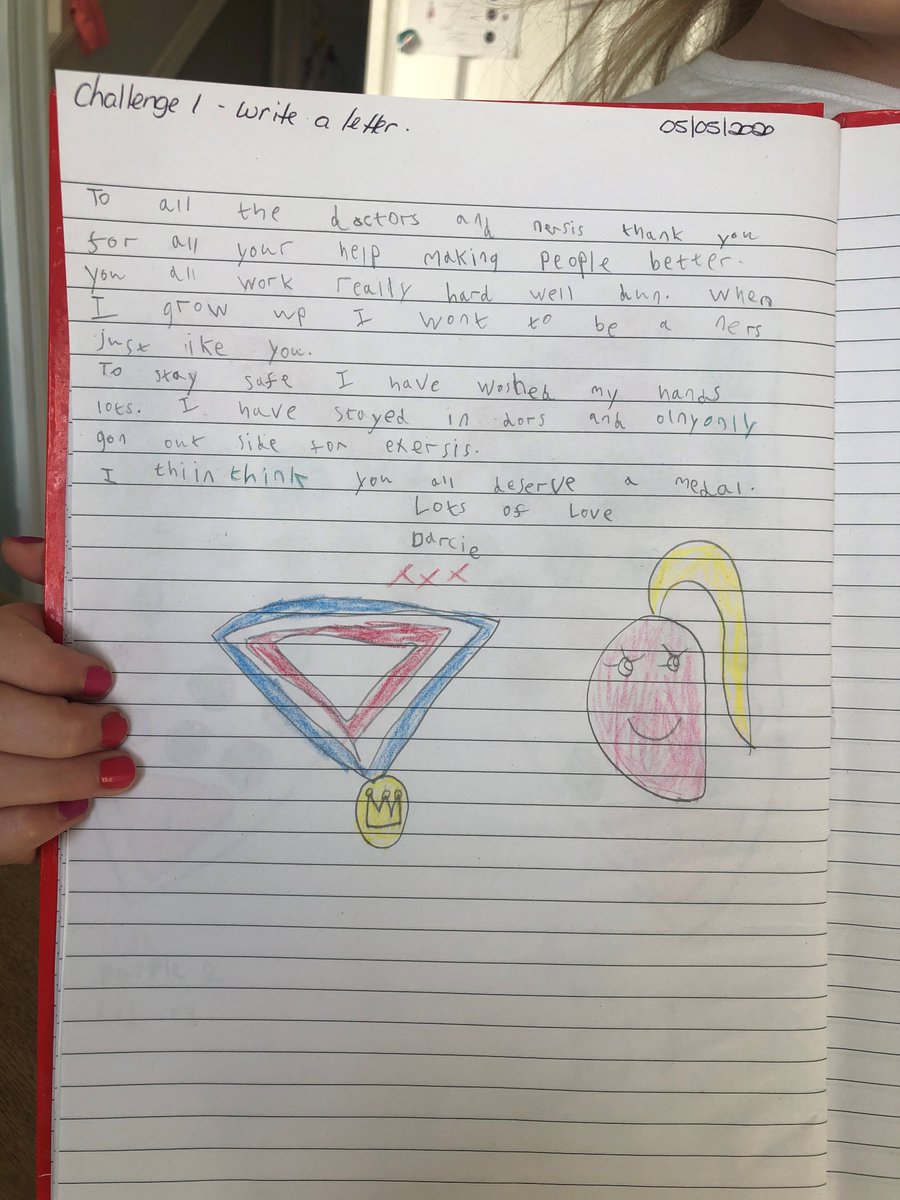 Challenge 1 - write a letter.
05/05/2020
To all the doctors and nersis thank you
for all your help making people better.
you all work really hard well dun. When
I grow up I wont to be a ners
just like you.
To stay safe I have woshed my hands
lots. I have stayed in dors and olny only
gon out side for exersis.
I thiin think you all deserve a medal.
Lots of Love
Darcie
xxx